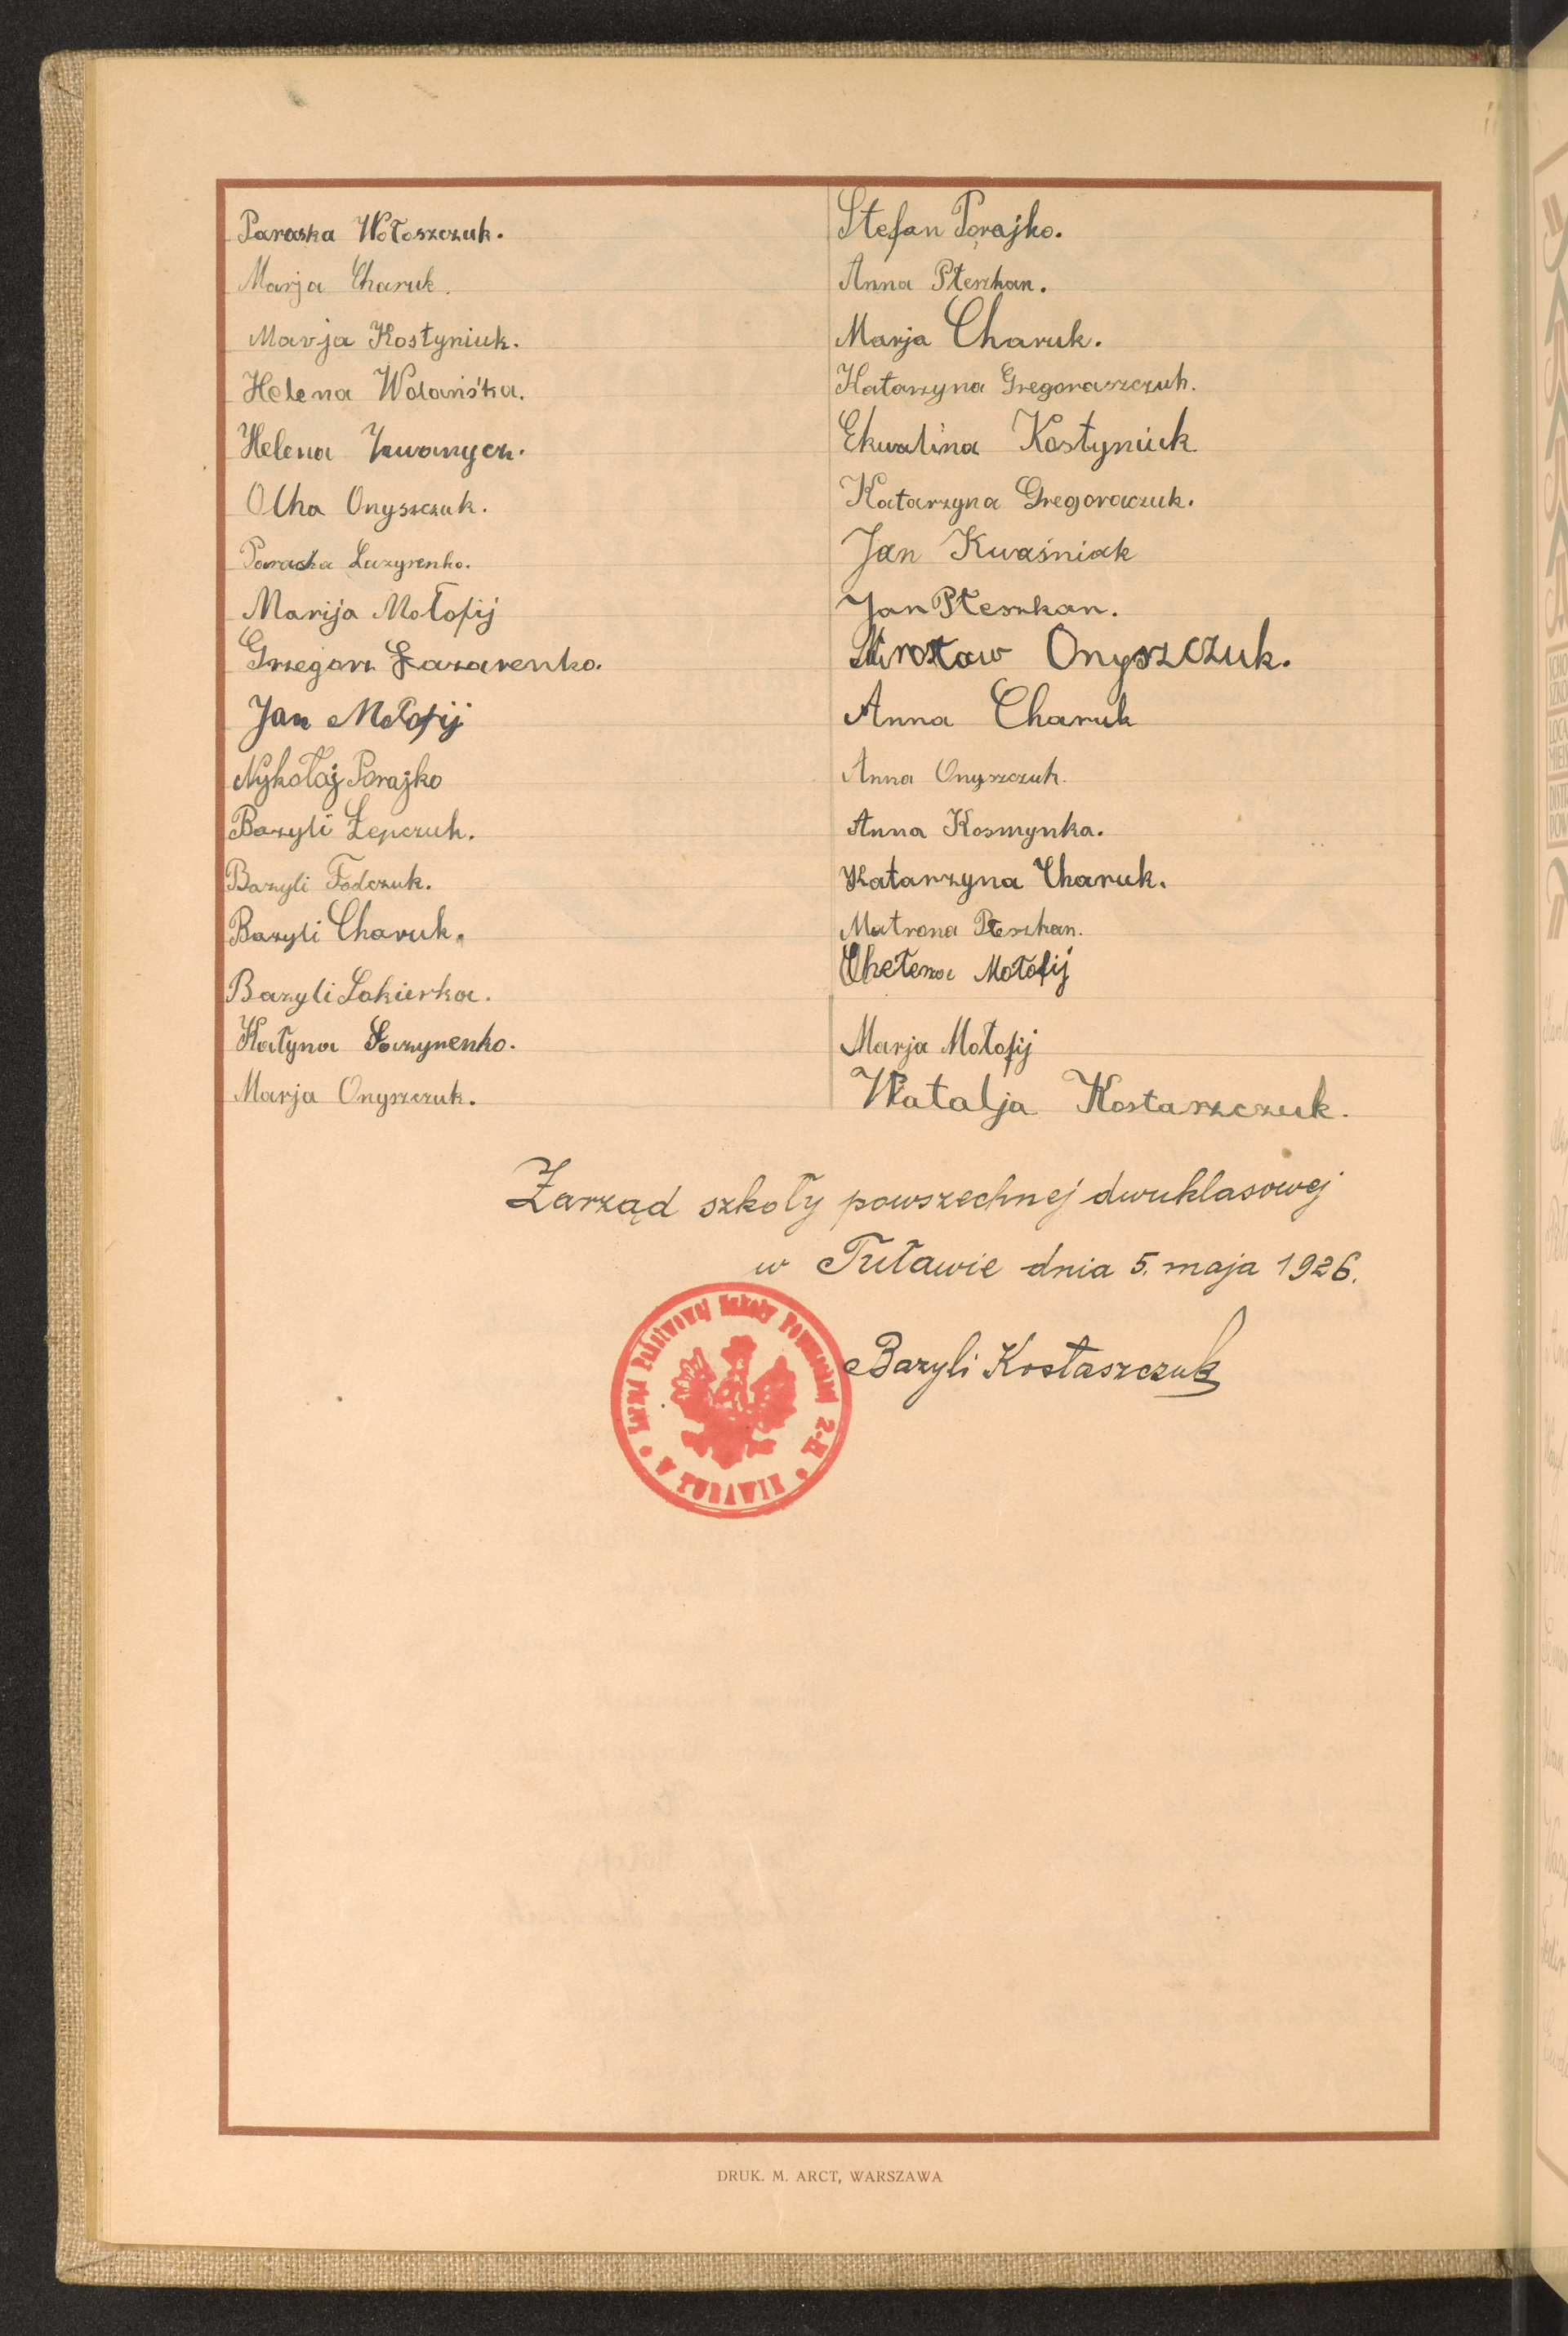 Paraska Wołoszczuk.
Marja Charuk.
Marja Kostyniuk.
Helena Wolańśka.
Helena Iwanycz.
Olha Onyszczuk.
Paraska Łazyrenko.
Marija Mołofij
Grzegorz Łazarenko.
Jan Mołofij
Nykołaj Porajko
Bazyli Łepczuk.
Bazyli Fodczuk.
Bazyli Charuk.
Bazyli Sokierka.
Katyna Łazynenko.
Marja Onyszczuk.
Stefan Porajko.
Anna Płeszkan.
Marja Charuk.
Katarzyna Gregoraszczuk.
Ekwalina Kostyniuk
Katarzyna Gregoraczuk.
Jan Kwaśniak
Jan Płeszkan.
Mirosław Onyszczuk.
Anna Charuk
Anna Onyszczuk.
Anna Kosmynka.
Katarzyna Charuk.
Matrona Płeszkan.
Mołofij
Marja Mołofij
Natalja Kostarzczuk.
Zarząd szkoły powszechnej dwuklasowej
w Tuławie dnia 5. maja 1926.
Bazyli Kostaszczuk
Zarząd Państwowej Szkoły Powszechnej 2-kl.
W TUŁAWIE
DRUK. M. ARCT, WARSZAWA